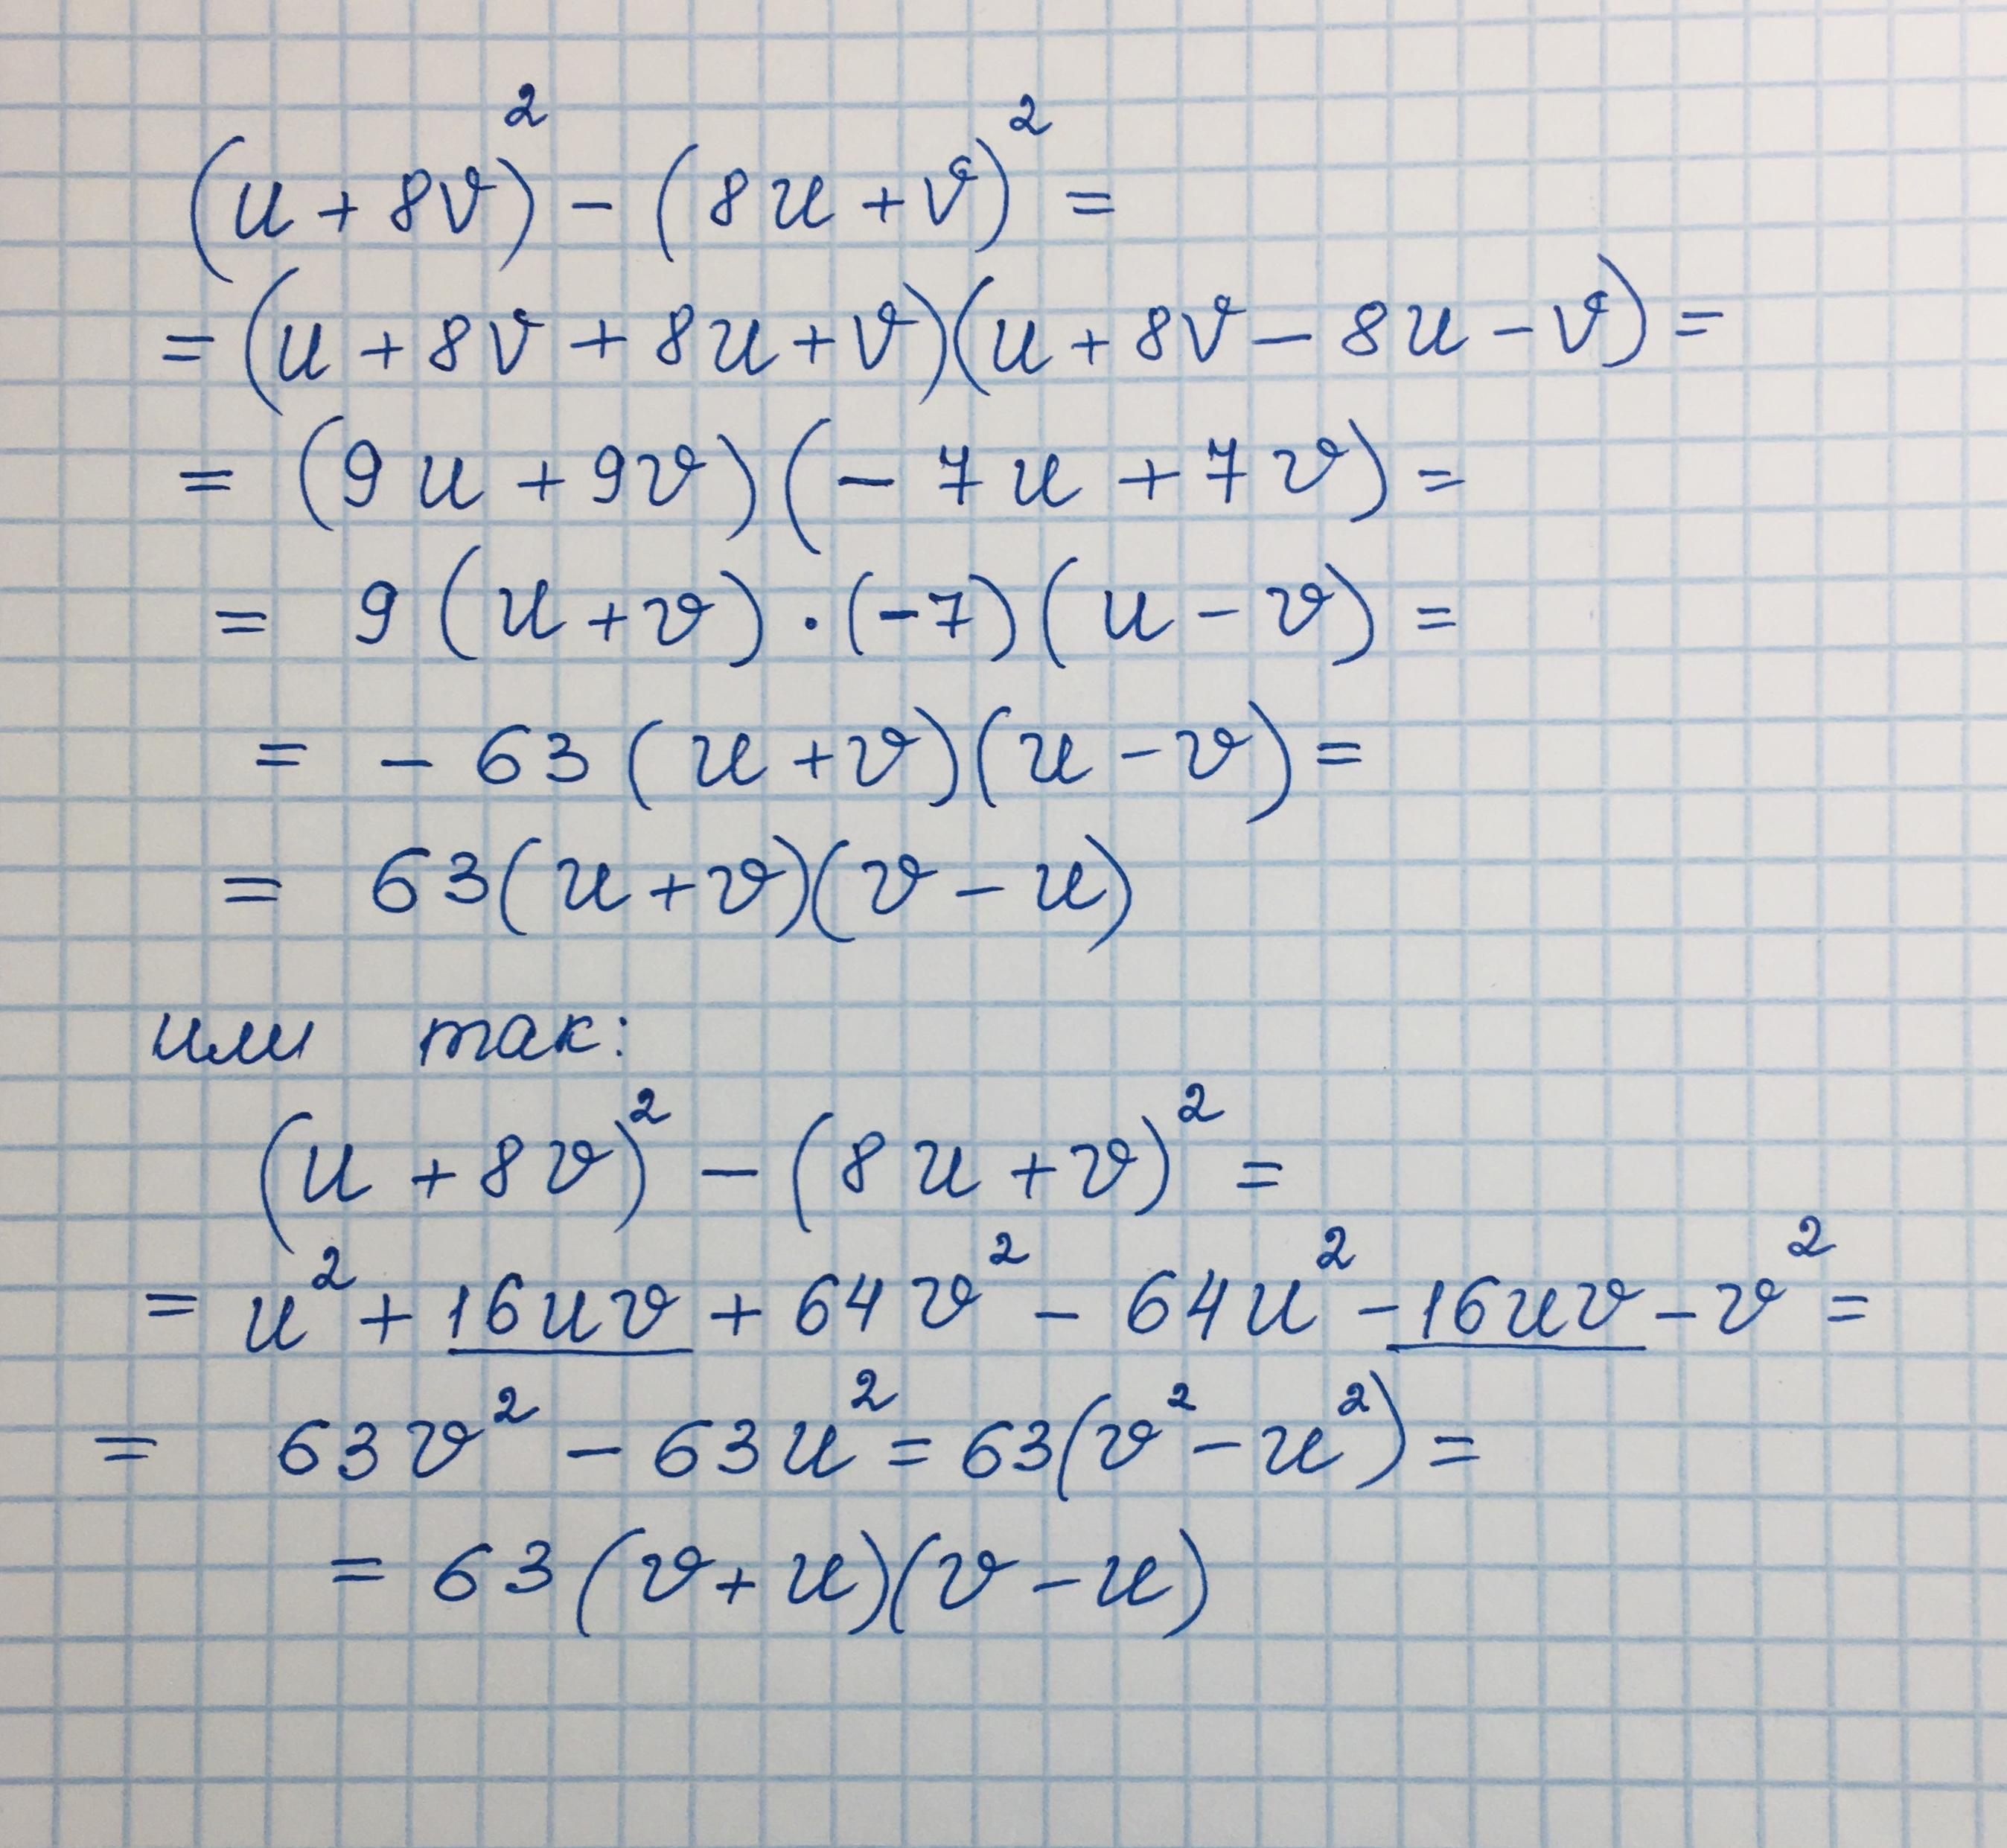 (u + 8v)² - (8u + v)² =
= (u + 8v + 8u + v)(u + 8v - 8u - v) =
= (9u + 9v)(-7u + 7v) =
= 9(u + v) · (-7)(u - v) =
= -63(u + v)(u - v) =
= 63(u + v)(v - u)
или так:
(u + 8v)² - (8u + v)² =
= u² + 16uv + 64v² - 64u² - 16uv - v² =
= 63v² - 63u² = 63(v² - u²) =
= 63(v + u)(v - u)